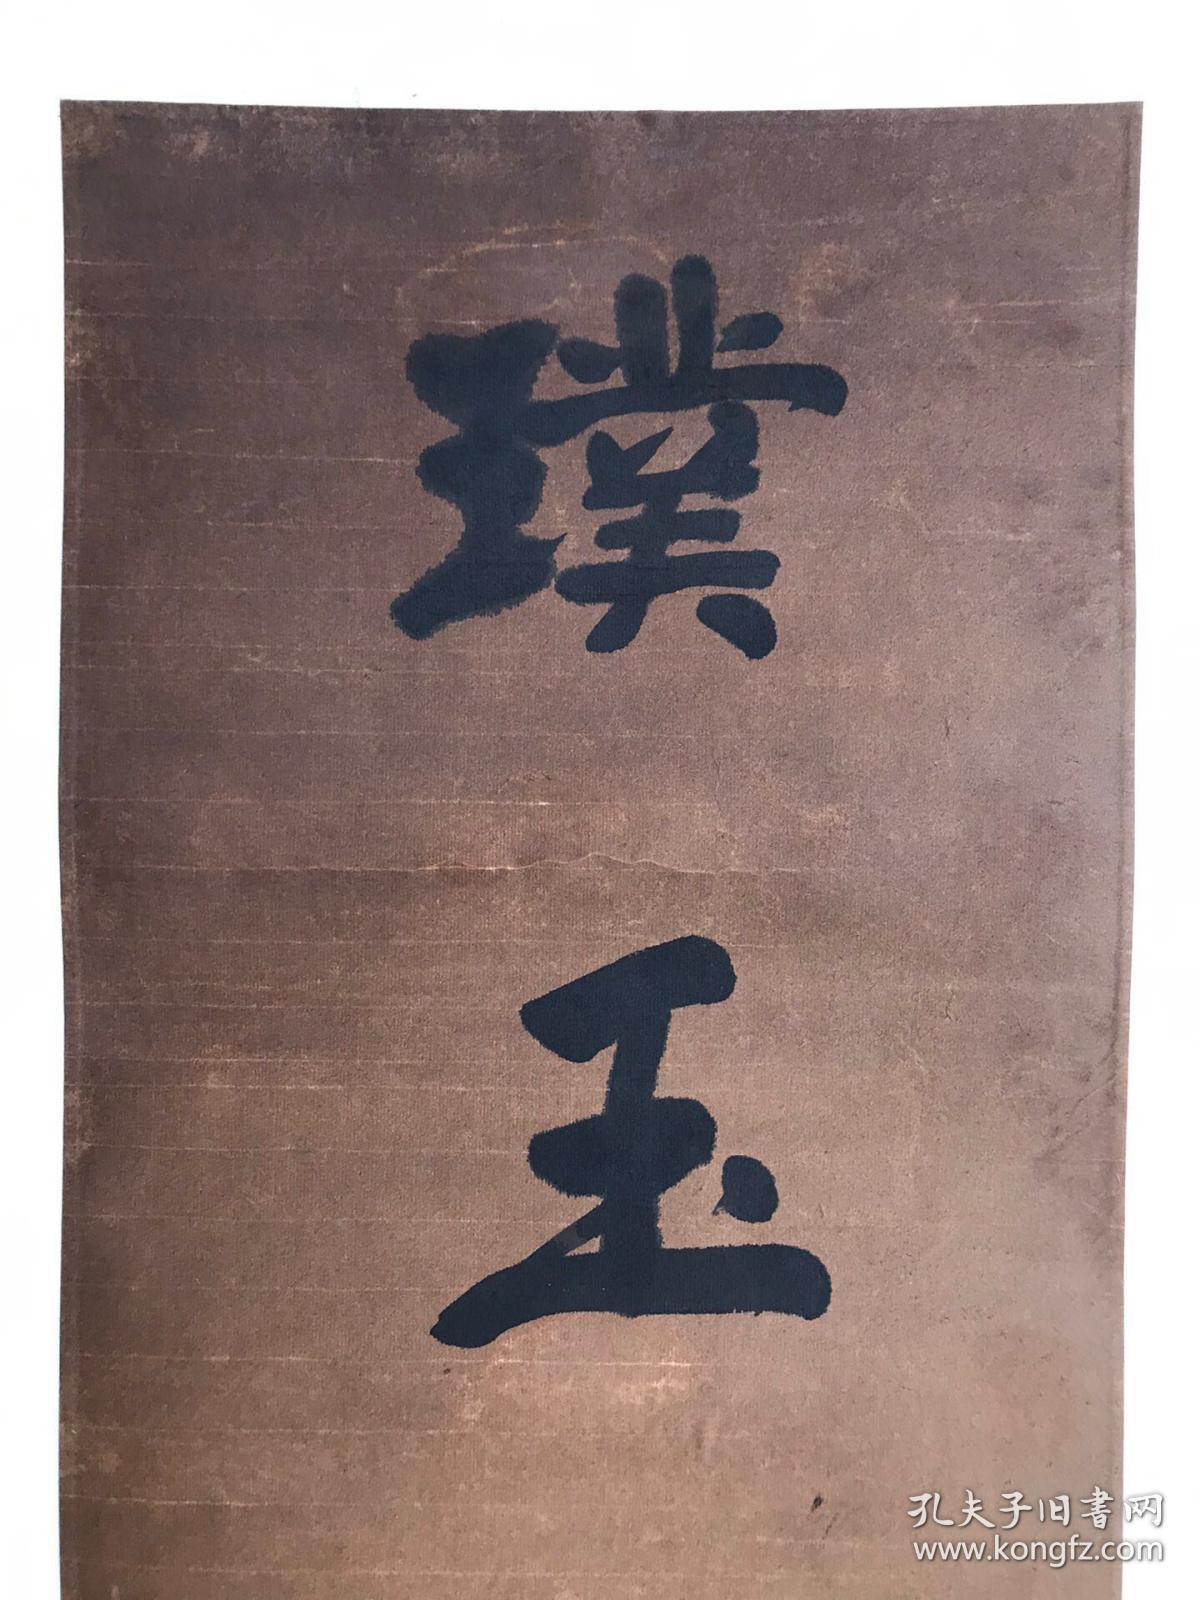 璞
玉
孔夫子旧书网
www.kongfz.com